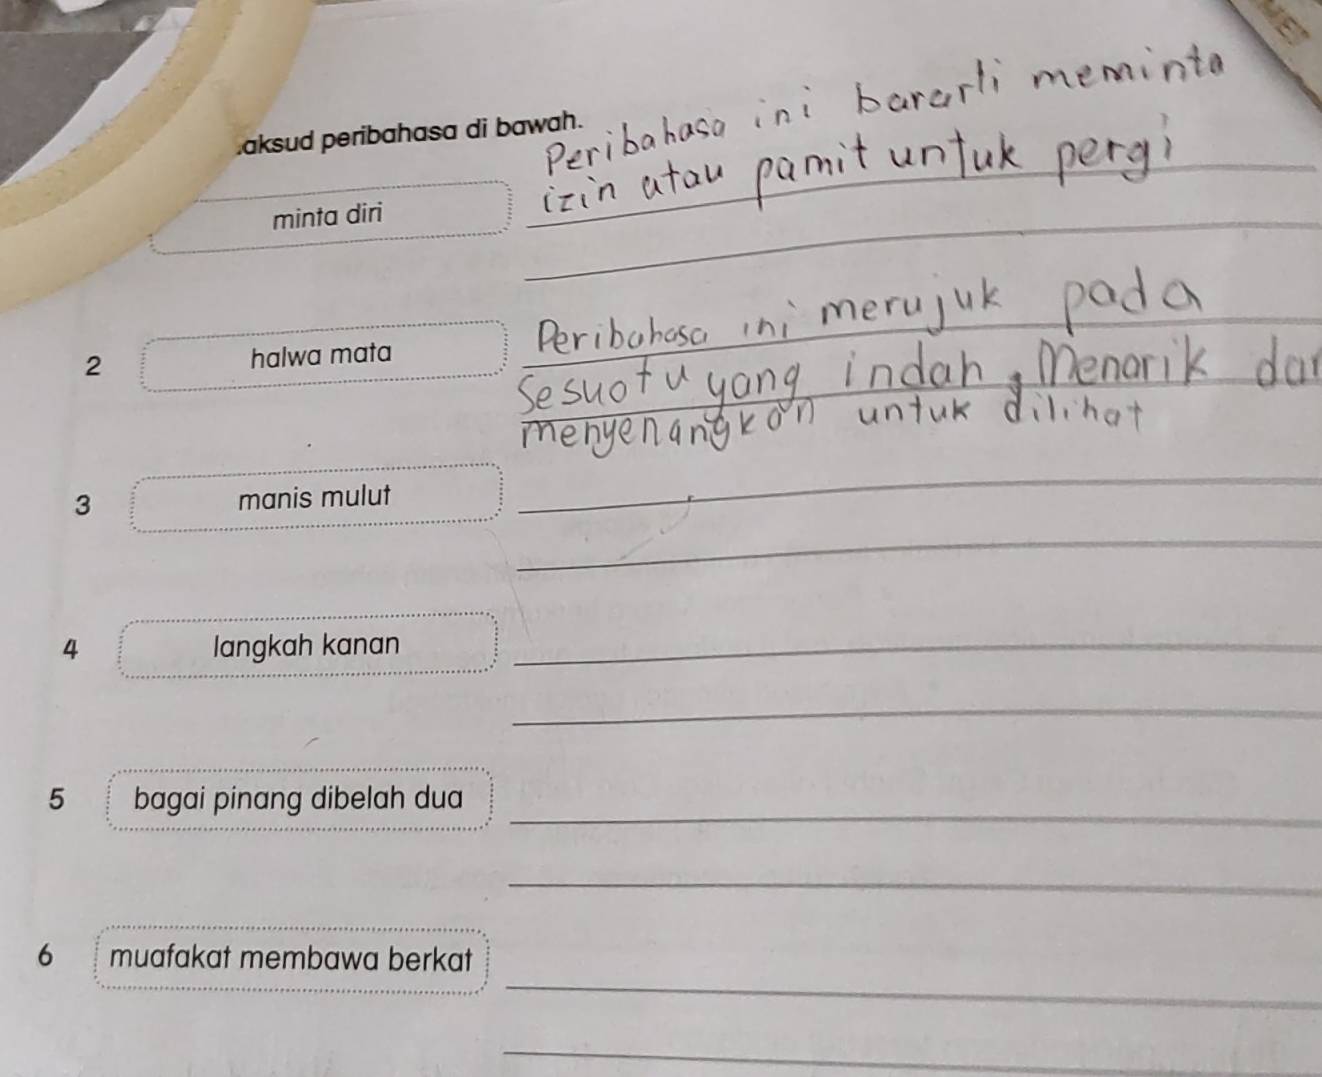 aksud peribahasa di bawah.
Peribahasa ini bararti meminta
izin atau pamit untuk pergi
minta diri
Peribahasa ini merujuk pada
2 halwa mata
Sesuatu yang indah, Menarik dan
menyenangkan untuk dilihat
3 manis mulut
4 langkah kanan
5 bagai pinang dibelah dua
6 muafakat membawa berkat